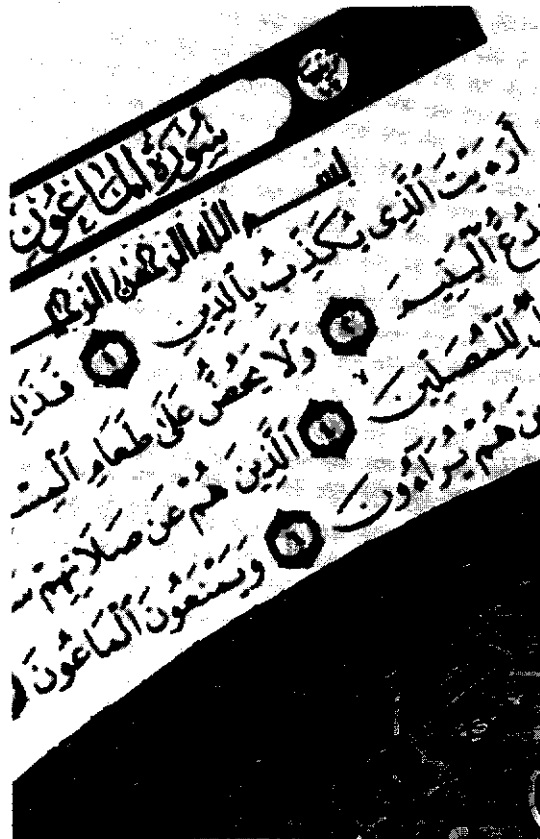 سُورَةُ الْمَاعُونِ
بِسْمِ اللَّهِ الرَّحْمَٰنِ الرَّحِيمِ
أَرَءَيْتَ ٱلَّذِى يُكَذِّبُ بِٱلدِّينِ ١
ٱلْيَتِيمَ ٢ وَلَا يَحُضُّ عَلَىٰ طَعَامِ
لِّلْمُصَلِّينَ ٤ ٱلَّذِينَ هُمْ عَن صَلَاتِهِمْ
هُمْ يُرَآءُونَ ٦ وَيَمْنَعُونَ ٱلْمَاعُونَ